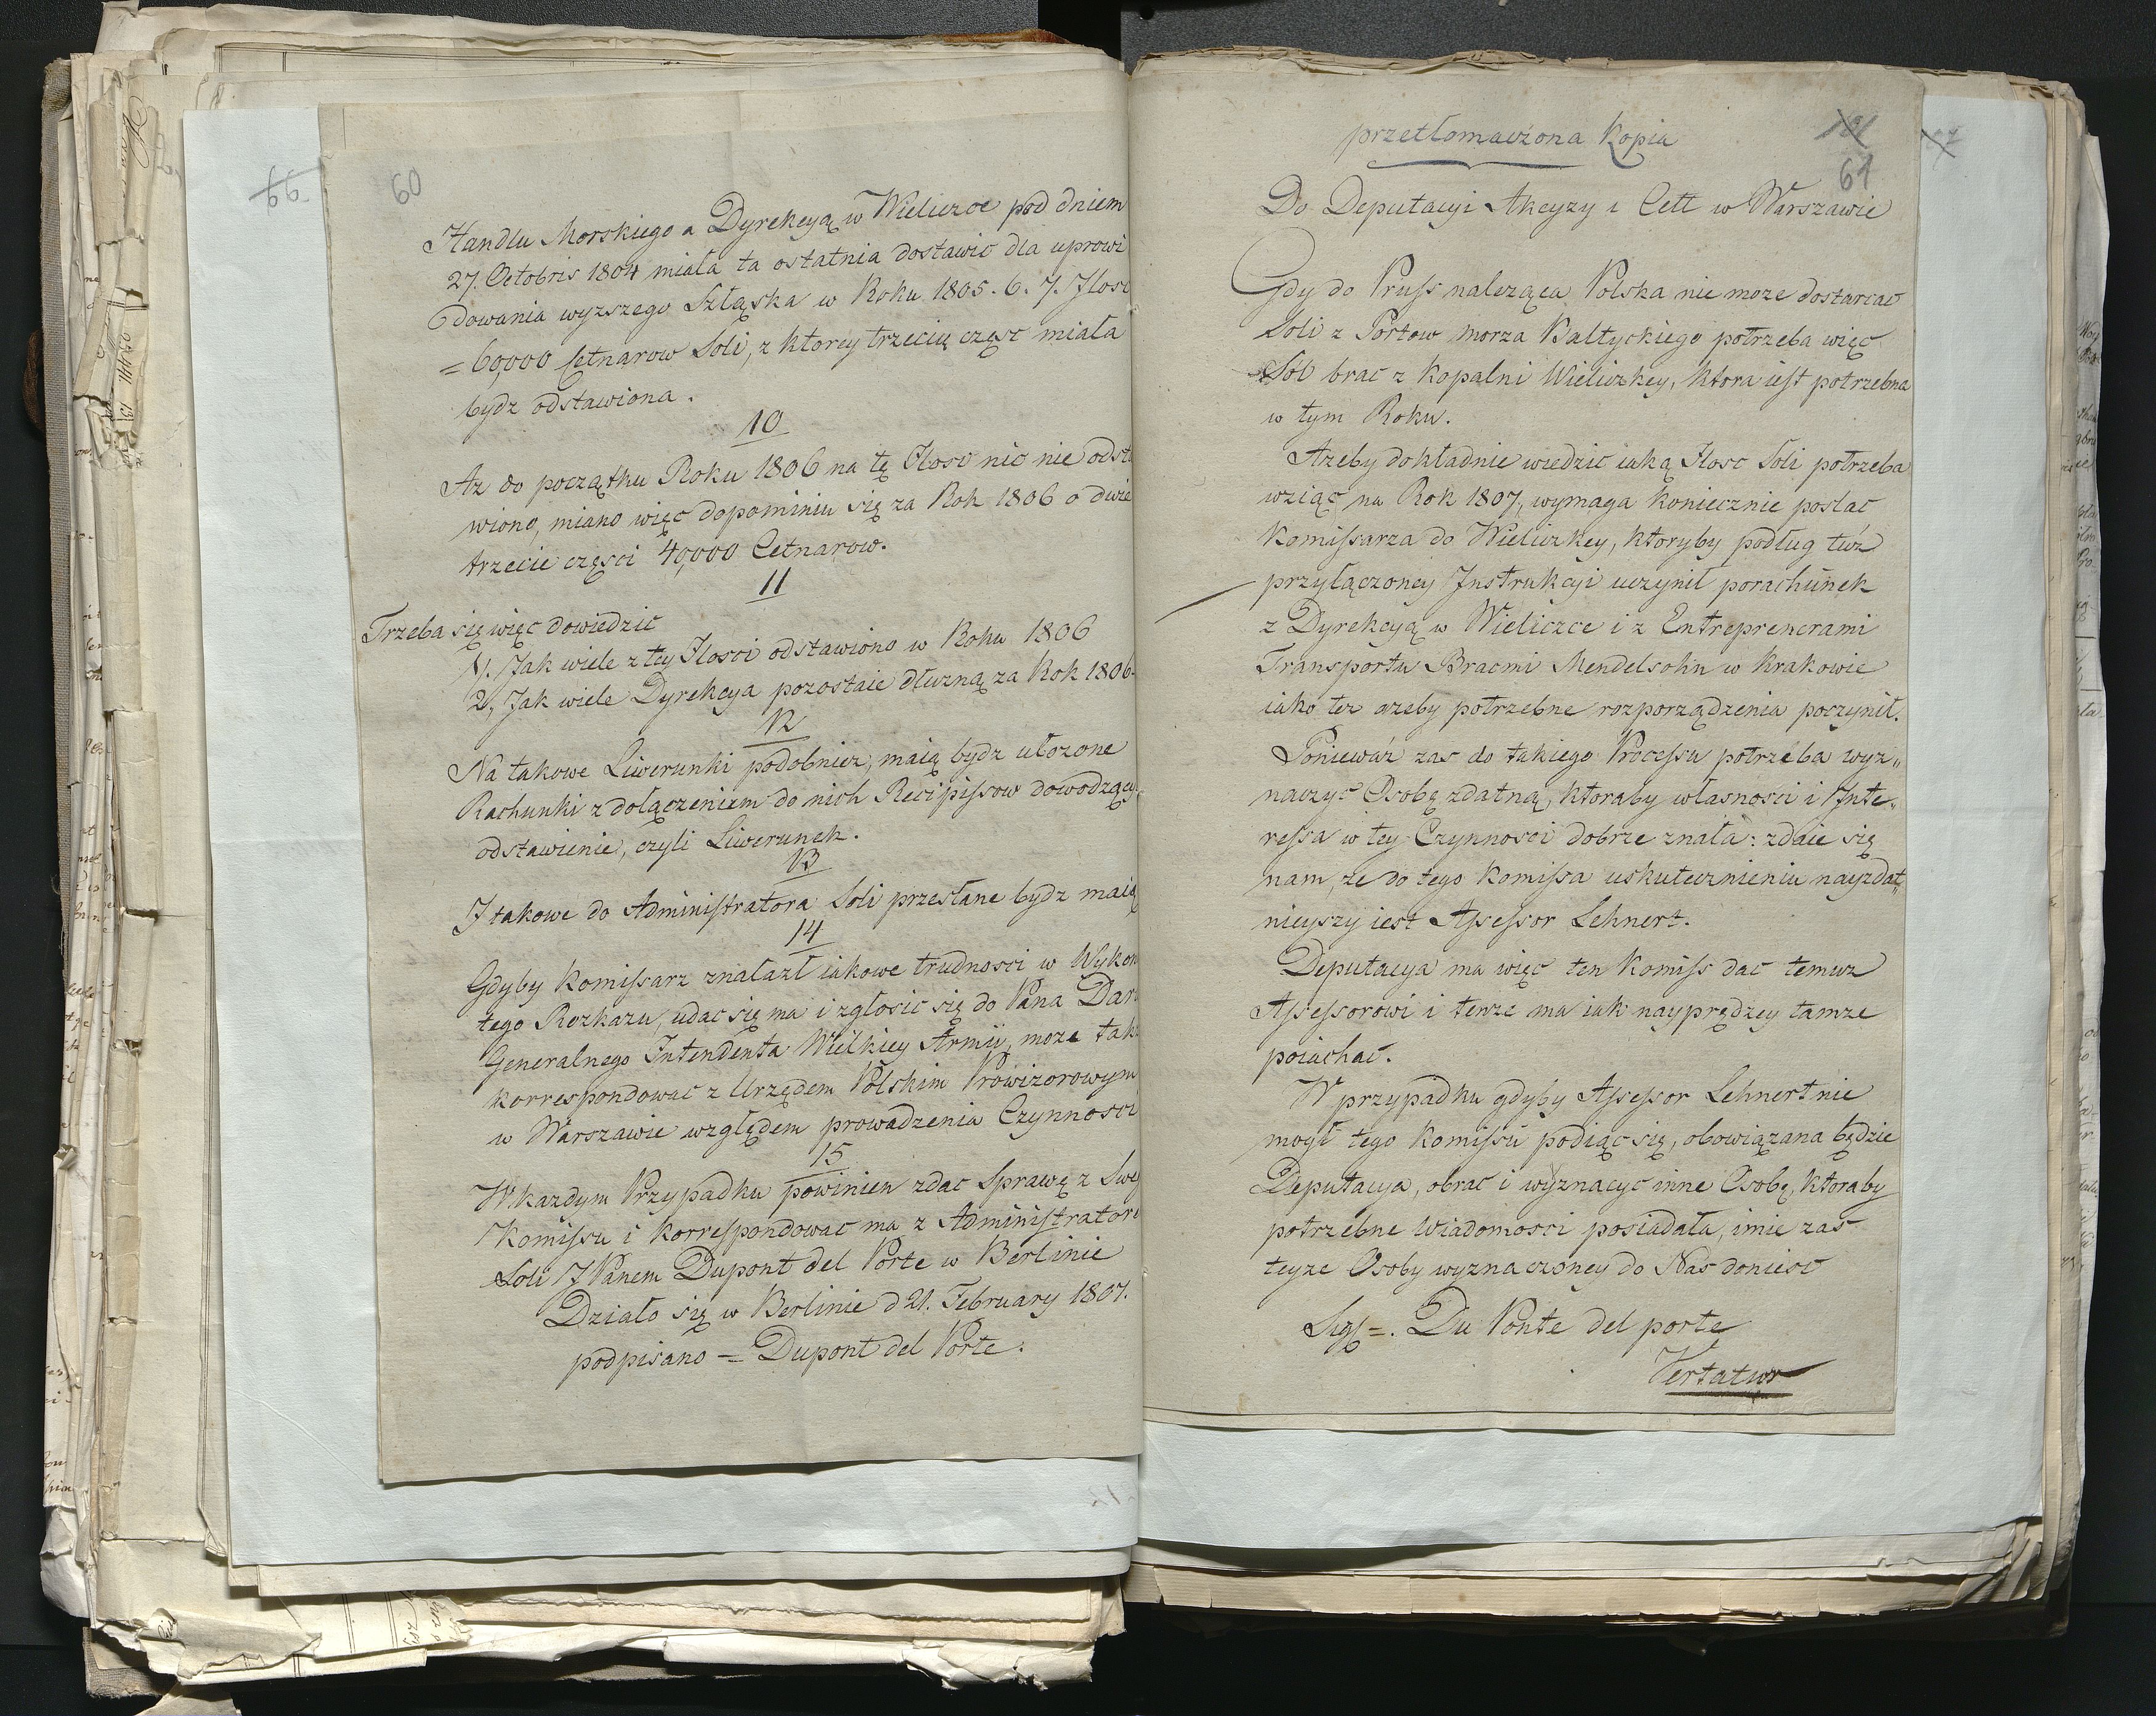 66
60
Handlu Morskiego a Dyrekcyą w Wieliczce pod dniem
27. Octobris 1804 miała ta ostatnia dostawić dla uprowi
dowania wyzszego Szląska w Roku 1805. 6. 7. Ilosc
= 60,000 Cetnarow Soli, z ktorey trzecią częsc miała
bydz odstawiona.
10
Az do początku Roku 1806 na tę Ilosc nic nie odsta
wiono, miano więc dopominiu się za Rok 1806 o dwie
trzecie części 40,000 Cetnarow.
11
Trzeba się więc dowiedzić
1. Jak wiele z tey Ilosci odstawiono w Roku 1806
2, Jak wiele Dyrekcya pozostaie dłużną za Rok 1806.
12
Na takowe Liwerunki podobniez, maią bydz ułozone
Rachunki z dołączeniem do nich Recipissow dowodzący
odstawienie, czyli Liwerunek.
13
I takowe do Administratora Soli przesłane bydz maią
14
Gdyby Komissarz znalazł iakowe trudności w Wykon
tego Rozkazu, udac się ma i zgłosic się do Pana Daru
Generalnego Intendenta Wielkiey Armii, moze tak
korrespondowac z Urzędem Polskim Prowizorowym
w Warszawie względem prowadzenia Czynnosci
15
W kazdym Przypadku powinien zdac Sprawę z Swe
Komissu i korrespondowac ma z Administratore
Soli JPanem Dupont del Porte w Berlinie
Działo się w Berlinie d 21. February 1807.
podpisano = Dupont del Porte.
przetłomaczona Kopia
61
Do Deputacyi Akcyzy i Cett w Warszawie
Gdy do Pruss naleząca Polska nie moze dostarcać
Soli z Portow morza Baltyckiego potrzeba więc
Sól brac z kopalni Wieliczkey, ktora iest potrzebna
w tym Roku.
Azeby dokładnie wiedzić iaką Ilosc Soli potrzeba
wziąć na Rok 1807, wymaga koniecznie posłac
Komissarza do Wieliczkey, ktoryby podług tuż
przyłączoney Instrukcyi uczynił porachunek
z Dyrekcyą w Wieliczce i z Entreprenerami
Transportu Bracmi Mendelsohn w Krakowie
iako tez azeby potrzebne rozporządzenia poczynił.
Poniewaz zas do takiego Processu potrzeba wyz„
naczyć Osobę zdatną, ktoraby własnosci i Inte„
ressa w tey Czynnosci dobrze znała: zdaie się
nam, ze do tego Komissa uskutecznieniu nayzdat„
nieyszy iest Assessor Lehnert.
Deputacya ma więc ten Komiss dac temuz
Assessorowi i tenze ma iak nayprędzey tamze
poiachac.
W przypadku gdyby Assessor Lehnert nie
mogł tego Komissu podiąc się, obowiązana będzie
Deputacya, obrac i wyznacyc inne Osobę, ktoraby
potrzebne Wiadomosci posiadała, imie zas
teyze Osoby wyznaczoney do Nas doniesc
Sigs =. Du Ponte del porte
Vertatur